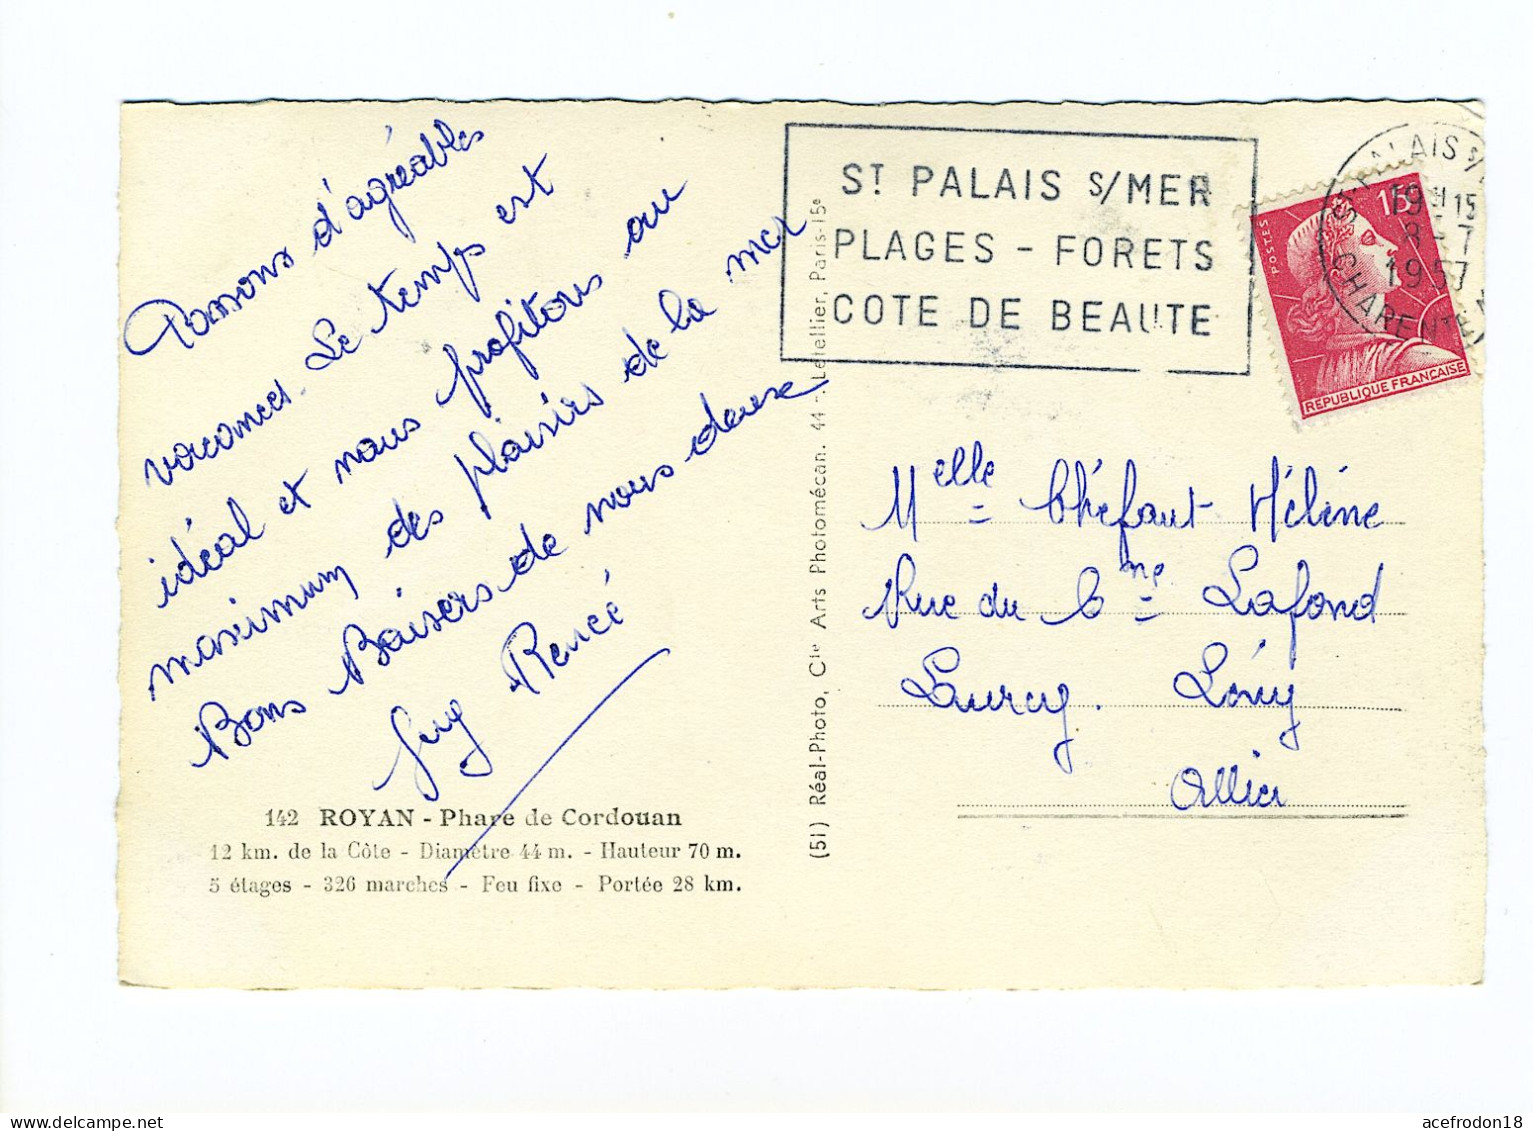 Passons d'agréables
vacances. Le temps est
idéal et nous profitons au
maximum des plaisirs de la mer
Bons Baisers de nous deux
Guy Renée
142 ROYAN - Phare de Cordouan
12 km. de la Côte - Diamètre 44 m. - Hauteur 70 m.
5 étages - 326 marches - Feu fixe - Portée 28 km.
(51) Réal-Photo, Cie Arts Photomécan. 44 - Letellier, Paris-15e
ST PALAIS S/MER
PLAGES - FORETS
COTE DE BEAUTE
ALAIS S/
19H15
8 - 7
1957
CHARENTE
POSTES
15
REPUBLIQUE FRANÇAISE
Melle Chéfaut Hélène
Rue du Cne Lafond
Lurcy. Lévy
Allier
acefrodon18